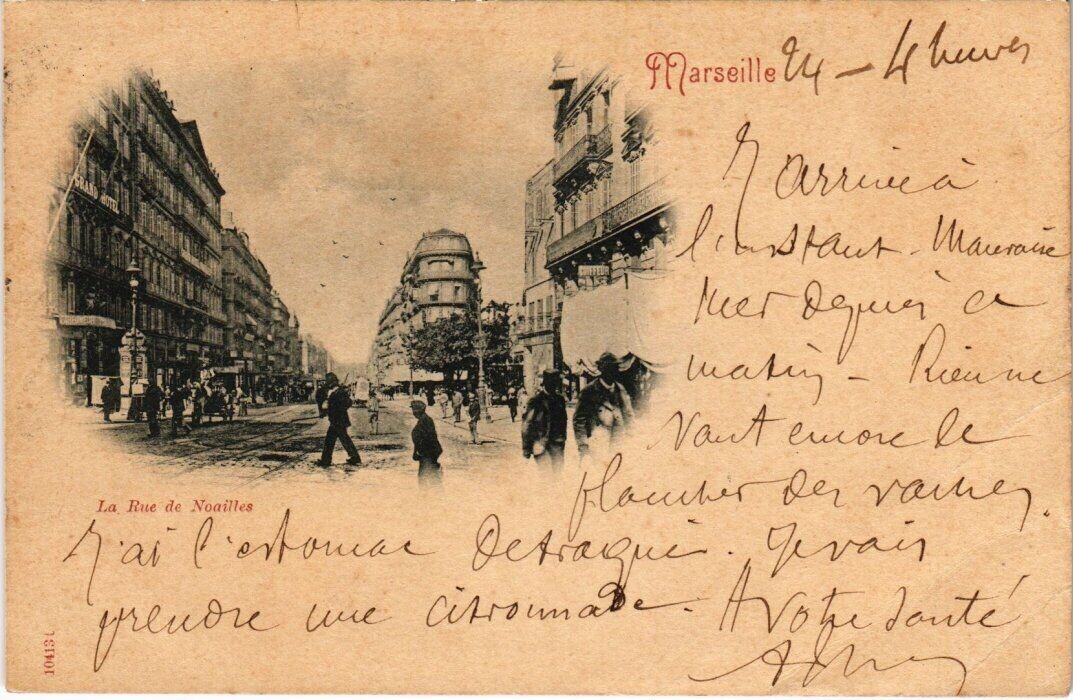 Marseille 24 - 4 heures
J'arrive à
l'instant. Mauvaise
Mer depuis ce
matin - Rien ne
Vaut encore le
plancher des vaches.
GRAND HOTEL
La Rue de Noailles
J'ai l'estomac Detraqué. Je vais
prendre une citronnade. A Votre Santé
104131